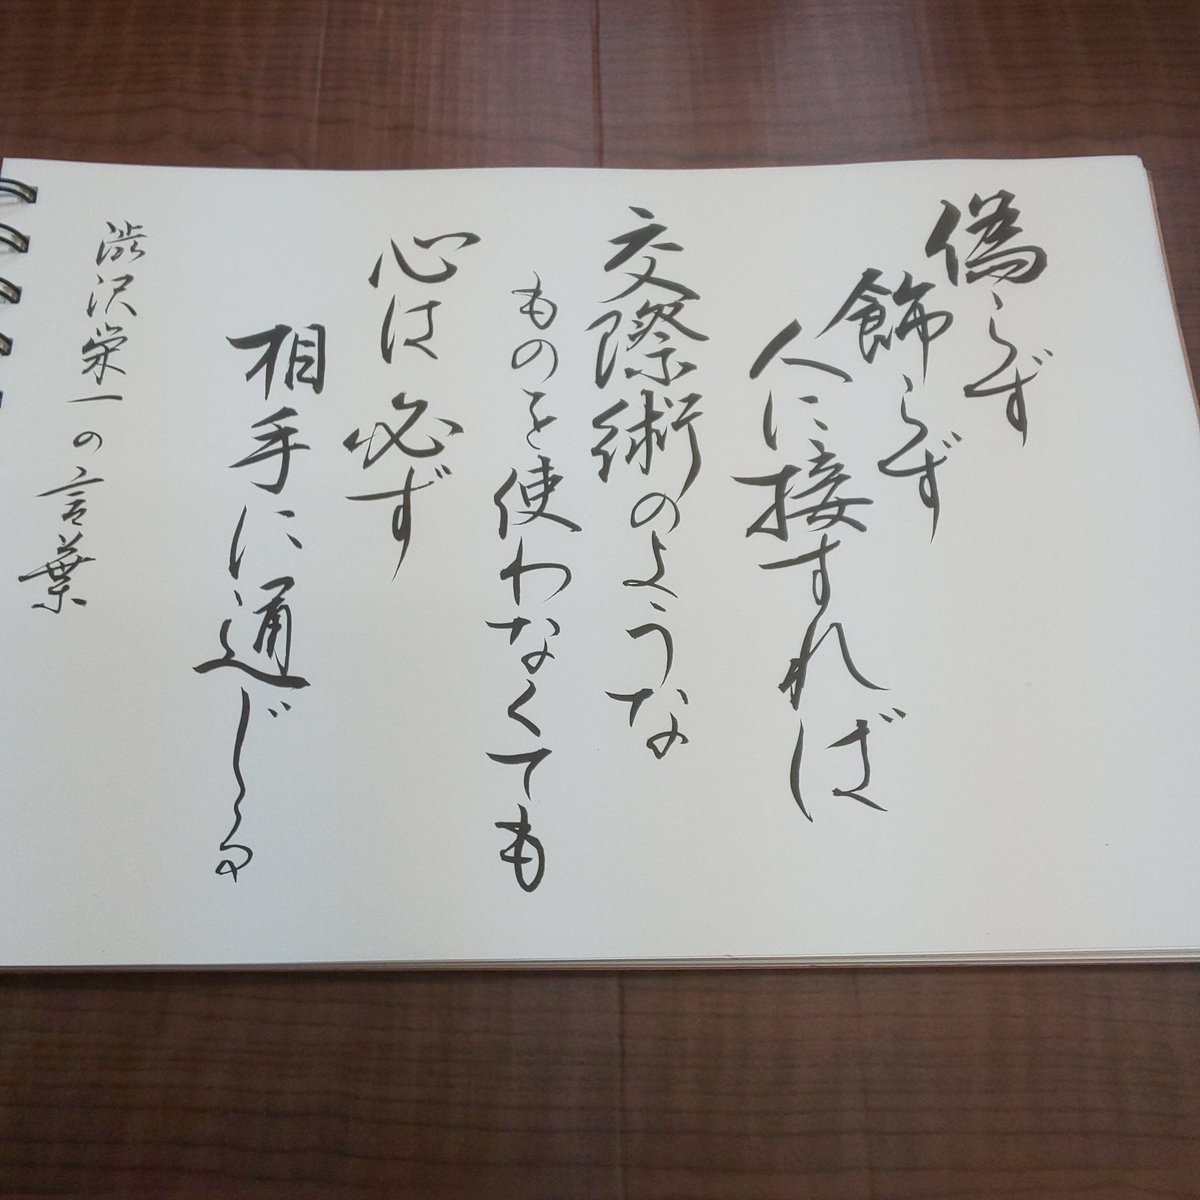 偽らず
飾らず
人に接すれば
交際術のような
ものを使わなくても
心は必ず
相手に通じる
渋沢栄一の言葉